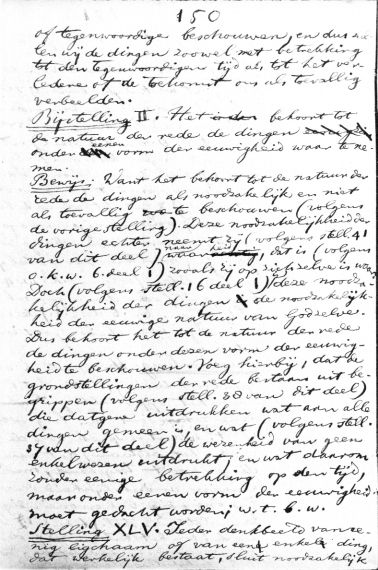 150
of tegenwoordige beschouwen, en dus zul-
len wij de dingen zoowel met betrekking
tot den tegenwoordigen tijd als tot het ver-
ledene of de toekomst ons als toevallig
verbeelden.
Bijstelling II. Het behoort tot
de natuur der rede de dingen
onder eenen vorm der eeuwigheid waar te ne-
men.
Bewijs. Want het behoort tot de natuur der
rede de dingen als noodzakelijk en niet
als toevallig te beschouwen (volgens
de vorige stelling). Deze noodzakelijkheid der
dingen echter neemt zij (volgens stell. 41
van dit deel) naar waarheid, dat is (volgens
o.k.w. 6. deel 1) zooals zij op zich zelve is waar.
Doch (volgens stell. 16 deel 1) deze noodza-
kelijkheid der dingen de noodzakelijk-
heid der eeuwige natuur van God zelve.
Dus behoort het tot de natuur der rede
de dingen onder dezen vorm der eeuwig-
heid te beschouwen. Voeg hierbij, dat de
grondstellingen der rede bestaan uit be-
grippen (volgens stell. 38 van dit deel)
die datgene uitdrukken wat aan alle
dingen gemeen is, en wat (volgens stell.
37 van dit deel) de wezenheid van geen
enkel wezen uitdrukt; en wat daarom
zonder eenige betrekking op den tijd,
maar onder eenen vorm der eeuwigheid
moet gedacht worden; w. t. b. w.
Stelling XLV. Ieder denkbeeld van ee-
nig ligchaam of van een enkel ding,
dat werkelijk bestaat, sluit noodzakelijk